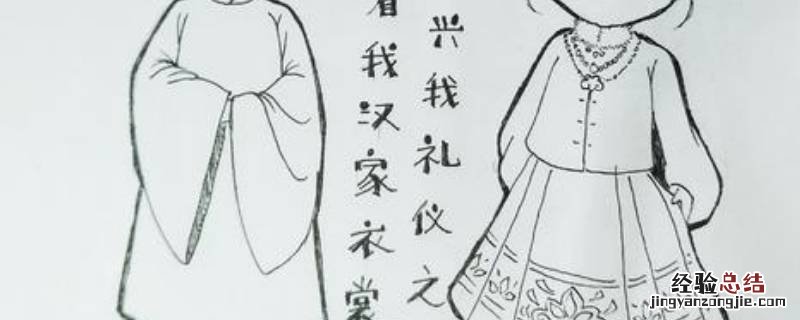 着我汉家衣裳
兴我礼仪之
经验总结
jingyanzongjie.com